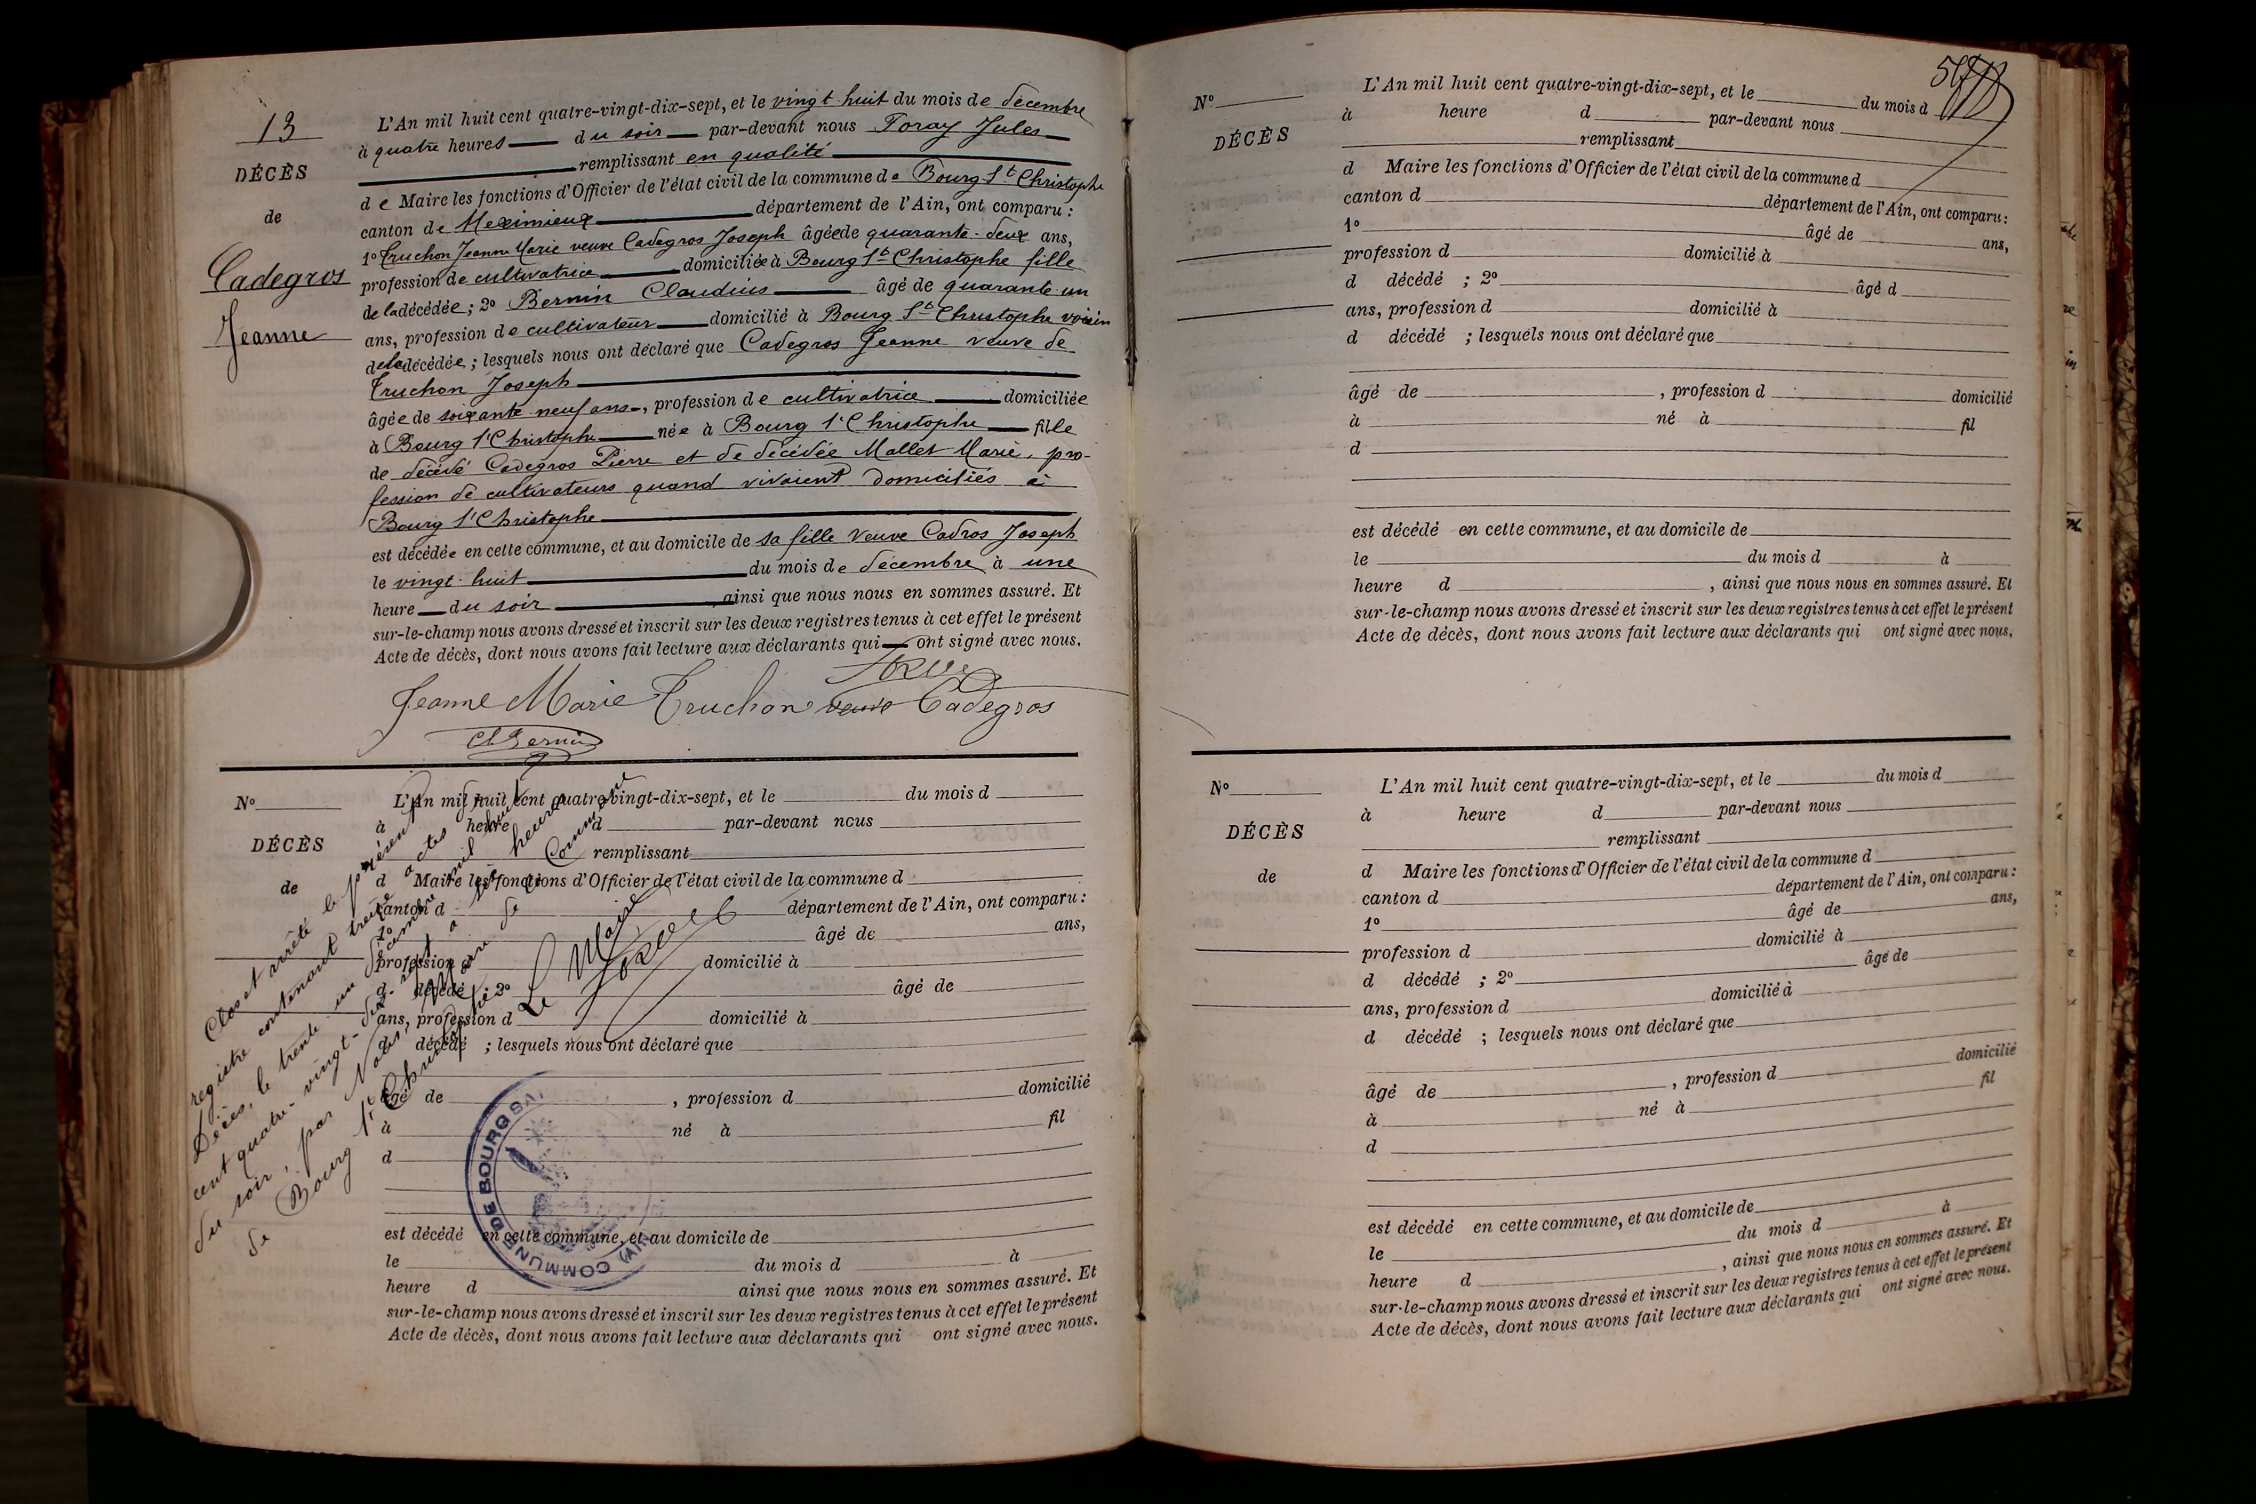 13
DÉCÈS
de
Cadegros
Jeanne
L'An mil huit cent quatre-vingt-dix-sept, et le vingt-huit du mois de décembre
à quatre heures du soir par-devant nous Joray Jules
remplissant en qualité
de Maire les fonctions d'Officier de l'état civil de la commune de Bourg St Christophe
canton de Meximieux département de l'Ain, ont comparu :
1º Truchon Jeanne Marie veuve Cadegros Joseph âgée de quarante-deux ans,
profession de cultivatrice domiciliée à Bourg St Christophe fille
de la décédée ; 2º Bernin Claudius âgé de quarante-un
ans, profession de cultivateur domicilié à Bourg St Christophe voisin
de la décédée ; lesquels nous ont déclaré que Cadegros Jeanne veuve de
Truchon Joseph
âgée de soixante neuf ans, profession de cultivatrice domiciliée
à Bourg St Christophe née à Bourg St Christophe fille
de décédé Cadegros Pierre et de décédée Mallet Marie, pro-
fession de cultivateurs quand vivaient domiciliés à
Bourg St Christophe
est décédée en cette commune, et au domicile de sa fille veuve Cadros Joseph
le vingt-huit du mois de décembre à une
heure du soir ainsi que nous nous en sommes assuré. Et
sur-le-champ nous avons dressé et inscrit sur les deux registres tenus à cet effet le présent
Acte de décès, dont nous avons fait lecture aux déclarants qui ont signé avec nous.
Jeanne Marie Truchon veuve Cadegros
Cl Bernin
Nº
DÉCÈS
de
L'An mil huit cent quatre-vingt-dix-sept, et le du mois d
à heure d par-devant nous
remplissant
d Maire les fonctions d'Officier de l'état civil de la commune d
canton d département de l'Ain, ont comparu :
1º âgé de ans,
profession d domicilié à
d décédé ; 2º âgé de
ans, profession d domicilié à
d décédé ; lesquels nous ont déclaré que
âgé de , profession d domicilié
à né à fil
d
est décédé en cette commune, et au domicile de
le du mois d à
heure d ainsi que nous nous en sommes assuré. Et
sur-le-champ nous avons dressé et inscrit sur les deux registres tenus à cet effet le présent
Acte de décès, dont nous avons fait lecture aux déclarants qui ont signé avec nous.
Clos et arrêté le présent
registre contenant treize actes de
Décès, le trente-un décembre mil huit
cent quatre-vingt-dix-sept à heures
du soir, par Nous, Maire de la Commune
de Bourg St Christophe
Le Maire
COMMUNE DE BOURG SA (AIN)
Nº
DÉCÈS
L'An mil huit cent quatre-vingt-dix-sept, et le du mois d
à heure d par-devant nous
remplissant
d Maire les fonctions d'Officier de l'état civil de la commune d
canton d département de l'Ain, ont comparu :
1º âgé de ans,
profession d domicilié à
d décédé ; 2º âgé d
ans, profession d domicilié à
d décédé ; lesquels nous ont déclaré que
âgé de , profession d domicilié
à né à fil
d
est décédé en cette commune, et au domicile de
le du mois d à
heure d , ainsi que nous nous en sommes assuré. Et
sur-le-champ nous avons dressé et inscrit sur les deux registres tenus à cet effet le présent
Acte de décès, dont nous avons fait lecture aux déclarants qui ont signé avec nous.
Nº
DÉCÈS
de
L'An mil huit cent quatre-vingt-dix-sept, et le du mois d
à heure d par-devant nous
remplissant
d Maire les fonctions d'Officier de l'état civil de la commune d
canton d département de l'Ain, ont comparu :
1º âgé de ans,
profession d domicilié à
d décédé ; 2º âgé de
ans, profession d domicilié à
d décédé ; lesquels nous ont déclaré que
âgé de , profession d domicilié
à né à fil
d
est décédé en cette commune, et au domicile de
le du mois d à
heure d , ainsi que nous nous en sommes assuré. Et
sur-le-champ nous avons dressé et inscrit sur les deux registres tenus à cet effet le présent
Acte de décès, dont nous avons fait lecture aux déclarants qui ont signé avec nous.